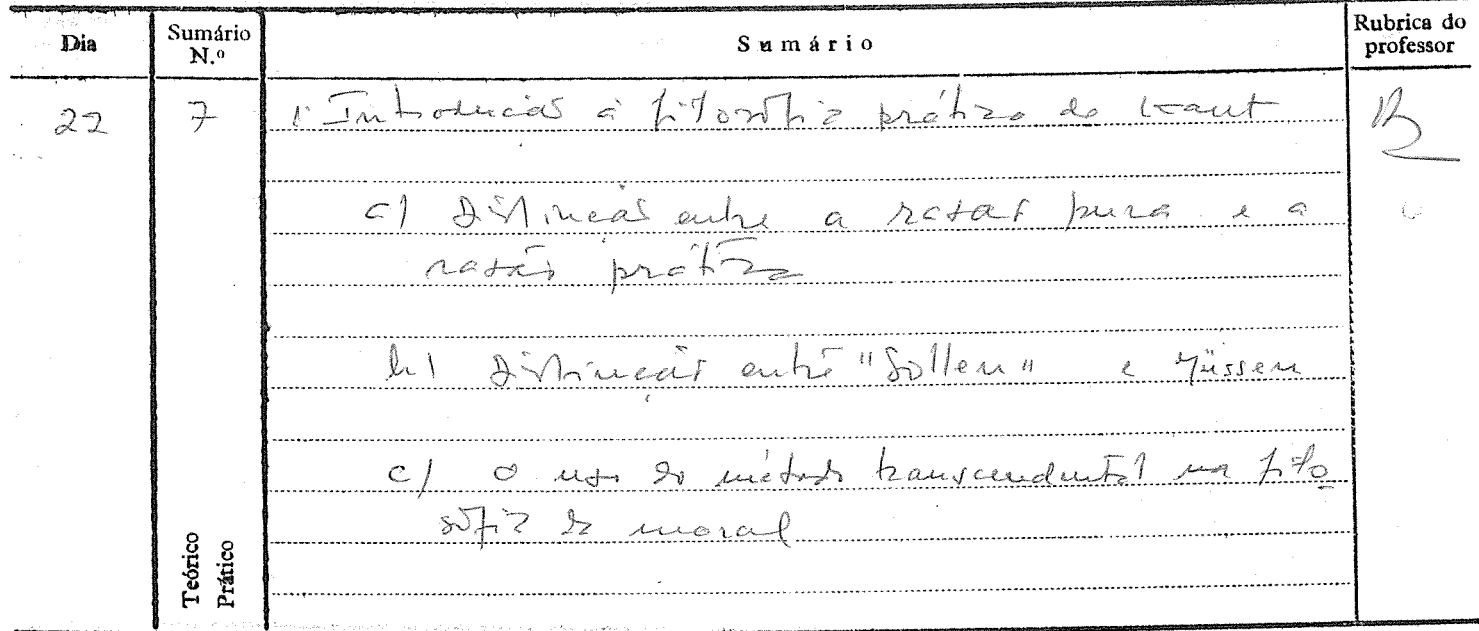 Dia
Sumário N.º
Sumário
Rubrica do professor
22
7
1. Introdução à filosofia prática de Kant
a) Distinção entre a razão pura e a
razão prática
b) Distinção entre "Sollen" e Müssen
c) O uso do método transcendental na filo
sofia da moral
Teórico
Prático